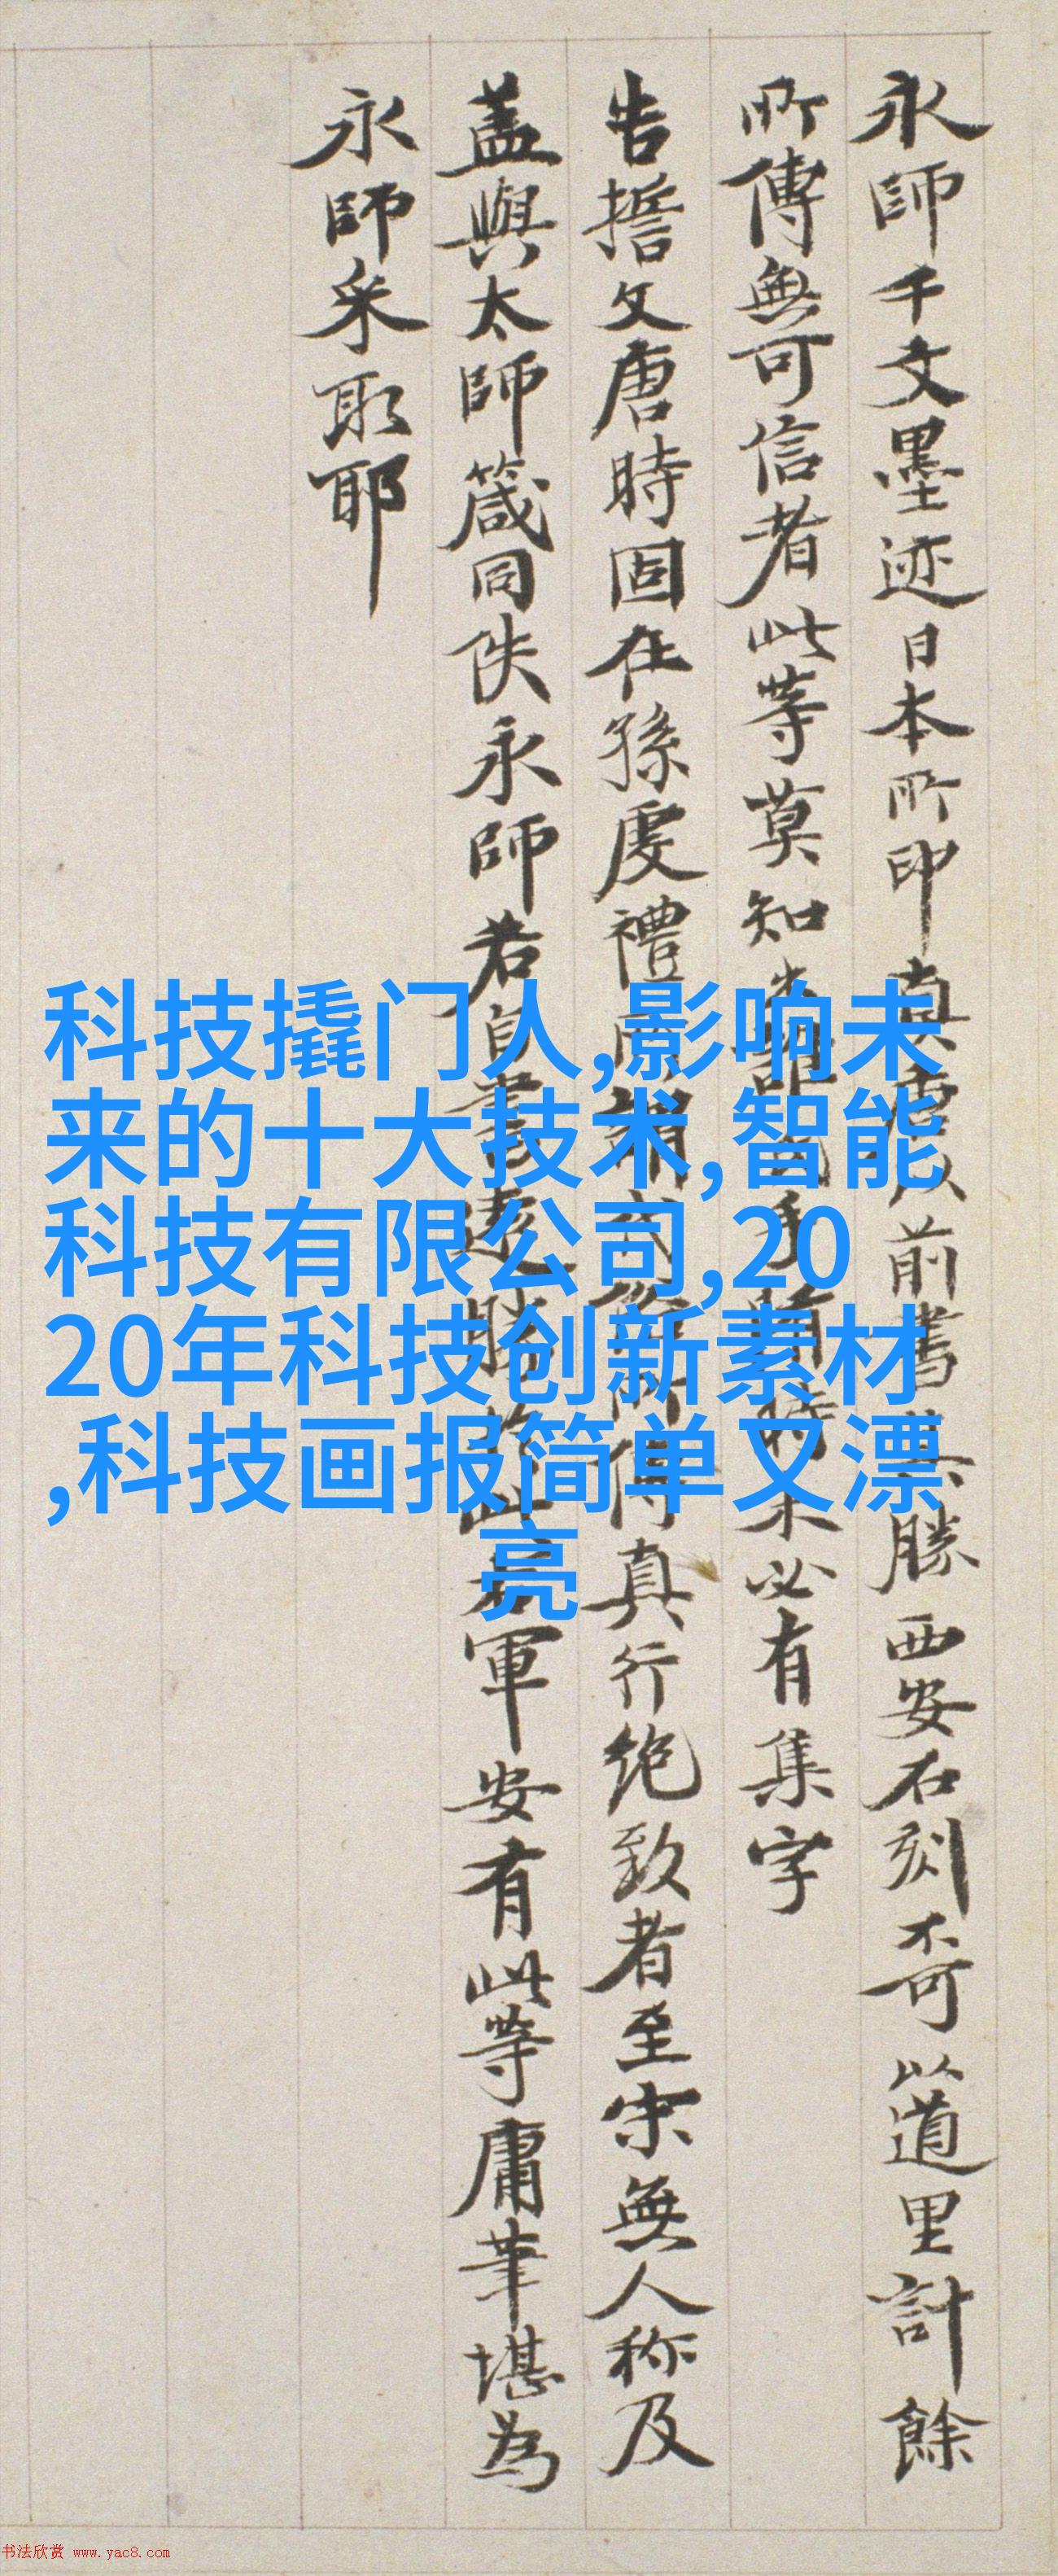 永師千文墨迹日本所印真虚以前書其勝西安石刻不可以道里計餘
所傳無可信者此等莫知時未必有集字
告擔文唐時固在孫虔禮所傳真行绝致者至宋無人称及
盖與太師箴同佚永師若自書遠勝於此軍安有此等庸筆堪為
永師采取耶
科技撬门人,影响未
来的十大技术,智能
科技有限公司,20
20年科技创新素材
,科技画报简单又漂
亮
书法欣赏 www.yac8.com